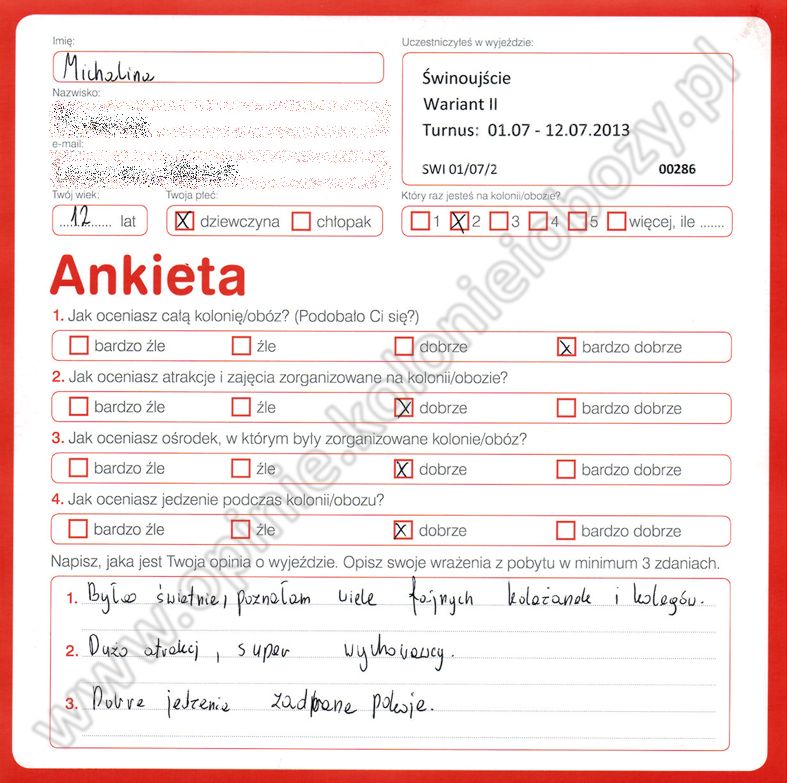 Imię:
Michalina
Nazwisko:
e-mail:
Twój wiek:
....12...... lat
Twoja płeć:
X dziewczyna chłopak
Uczestniczyłeś w wyjeździe:
Świnoujście
Wariant II
Turnus: 01.07 - 12.07.2013
SWI 01/07/2 00286
Który raz jesteś na kolonii/obozie?
1 X 2 3 4 5 więcej, ile .......
Ankieta
1. Jak oceniasz całą kolonię/obóz? (Podobało Ci się?)
bardzo źle źle dobrze X bardzo dobrze
2. Jak oceniasz atrakcje i zajęcia zorganizowane na kolonii/obozie?
bardzo źle źle X dobrze bardzo dobrze
3. Jak oceniasz ośrodek, w którym były zorganizowane kolonie/obóz?
bardzo źle źle X dobrze bardzo dobrze
4. Jak oceniasz jedzenie podczas kolonii/obozu?
bardzo źle źle X dobrze bardzo dobrze
Napisz, jaka jest Twoja opinia o wyjeździe. Opisz swoje wrażenia z pobytu w minimum 3 zdaniach.
1. Było świetnie, poznałam wiele fajnych koleżanek i kolegów.
2. Dużo atrakcj, super wychowawcy.
3. Dobre jedzenie zadbane pokoje.
www.opinie.kolonieiobozy.pl